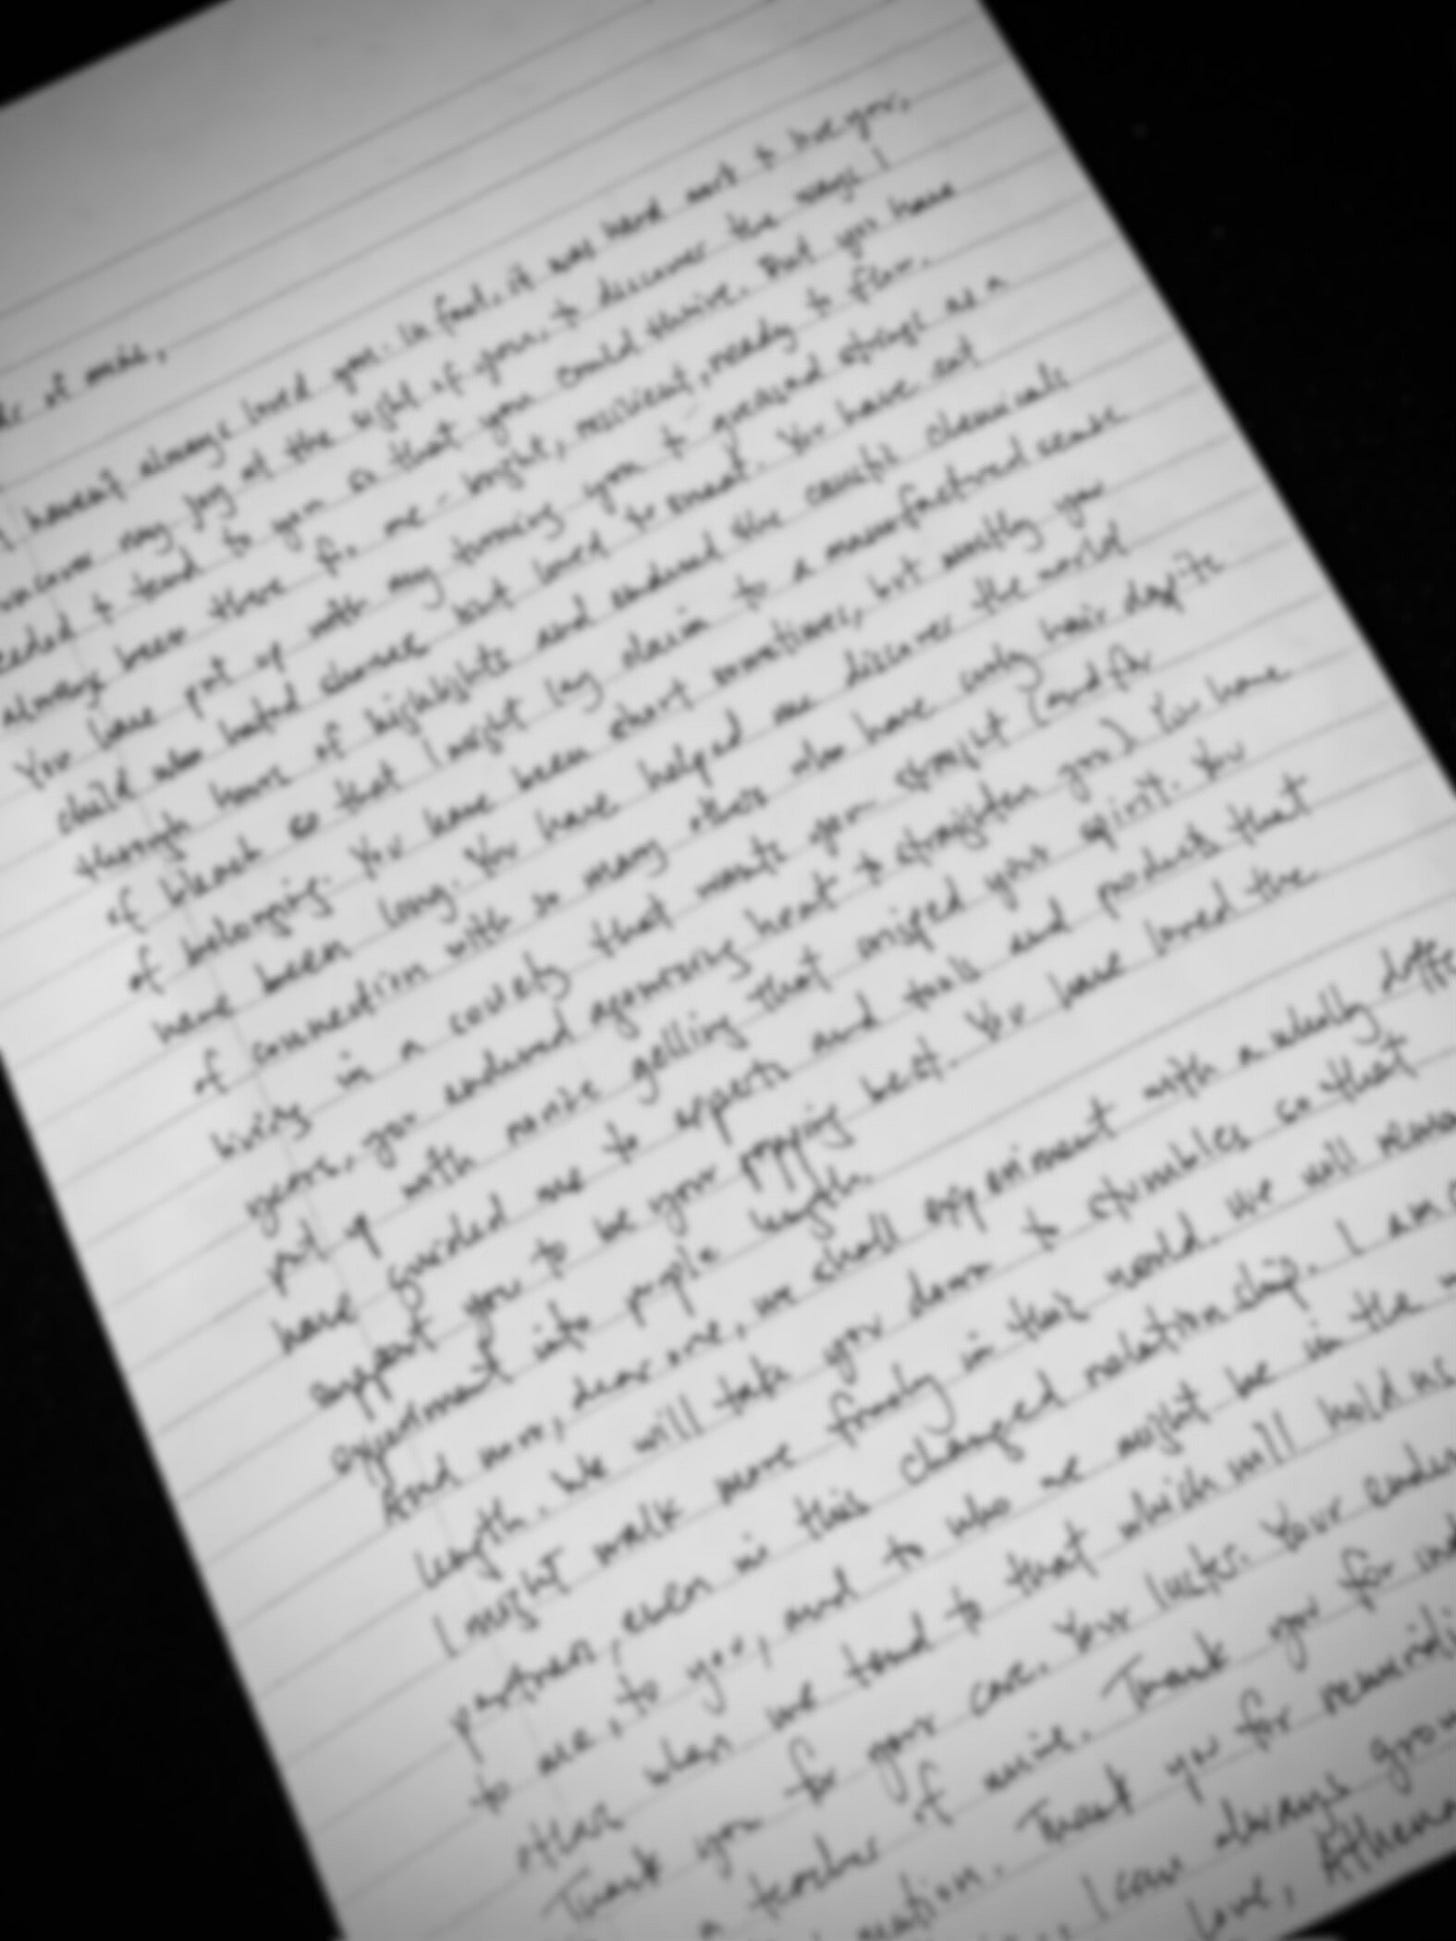 of mine,
I haven't always loved you. In fact, it was hard work to love you,
uncover my joy at the sight of you, to discover the ways I
needed to tend to you so that you could thrive. But you have
always been there for me - bright, resilient, ready to flow.
You have put up with my turning you to greased strings as a
child who hated shower but loved to sweat. You have sat
through hours of highlights and endured the caustic chemicals
of bleach so that I might lay claim to a manufactured sense
of belonging. You have been short sometimes, but mostly you
have been long. You have helped me discover the world
of connection with so many others who have curly hair despite
living in a society that wants you straight (and for
years, you endured agonizing heat to straighten you). You have
put up with gelling that your spirit. You
have guided me to experts and tools and products that
support you to be your popping best. You have loved the
experiment into purple length.
And now, dear one, we shall experiment with a wholly
length. We will take you down to stumbles so that
I might walk more freely in this world. We will
partners, even in this changed relationship. I am
to me, to you, and to who we might be in the
other when we tend to that which will hold us
Thank you for your care. Your lusts. Your
a teacher of mine. Thank you for
Thank you for
I can always
Love, Athena